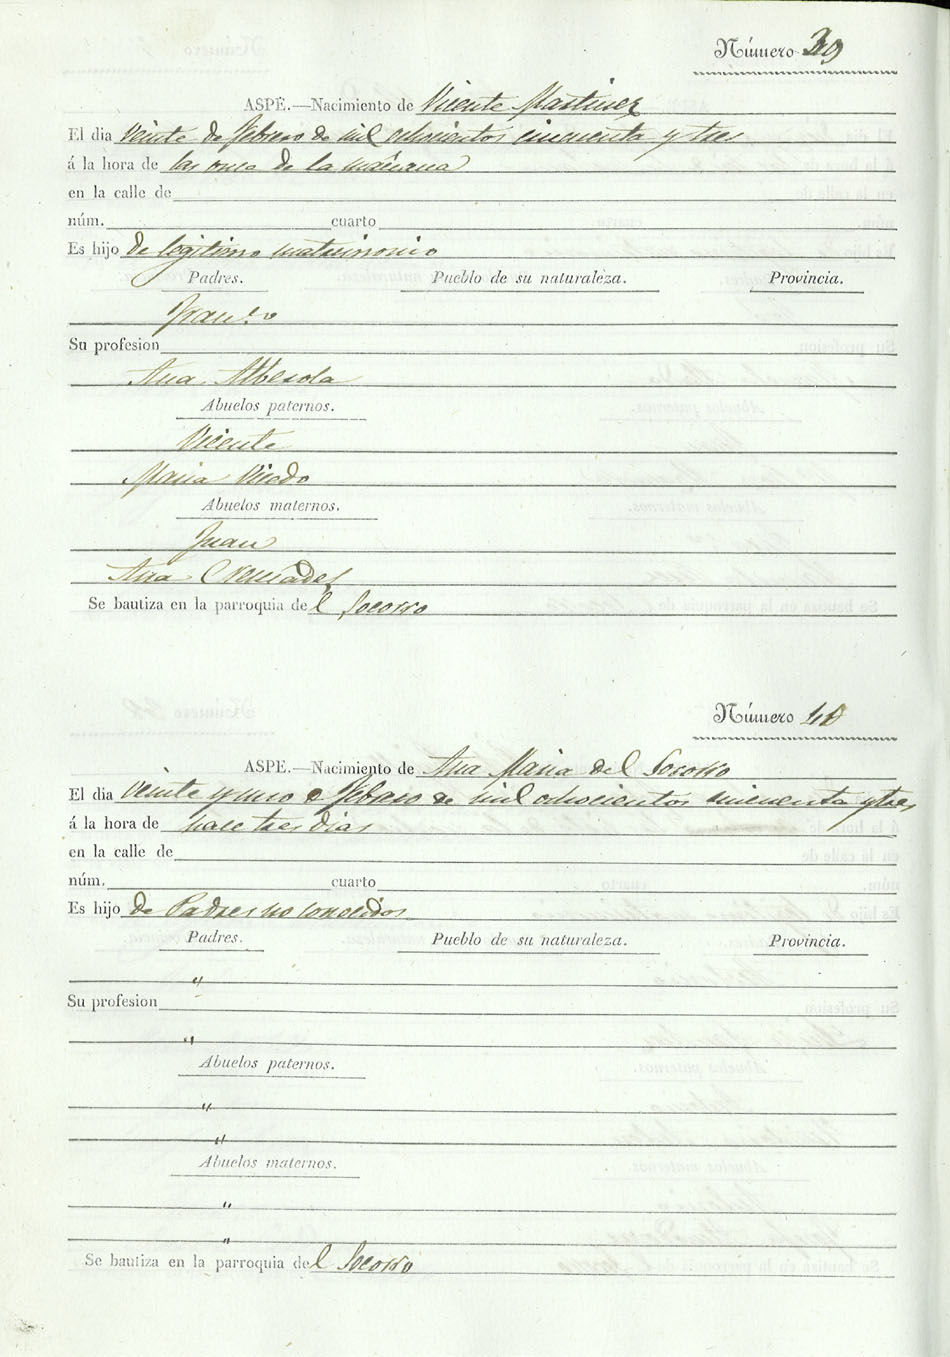 Número 39
ASPE.—Nacimiento de Vicente Martinez
El dia veinte de febrero de mil ochocientos cincuenta y tres
á la hora de las once de la mañana
en la calle de
núm. cuarto
Es hijo de legitimo matrimonio
Padres. Pueblo de su naturaleza. Provincia.
Franco
Su profesion
Ana Alberola
Abuelos paternos.
Vicente
Maria
Abuelos maternos.
Juan
Ana Cremades
Se bautiza en la parroquia del Socorro
Número 40
ASPE.—Nacimiento de Ana Maria del Socorro
El dia veinte y uno de febrero de mil ochocientos cincuenta y tres
á la hora de hace tres dias
en la calle de
núm. cuarto
Es hijo de Padres no conocidos
Padres. Pueblo de su naturaleza. Provincia.
"
Su profesion
"
Abuelos paternos.
"
"
Abuelos maternos.
"
"
Se bautiza en la parroquia del Socorro